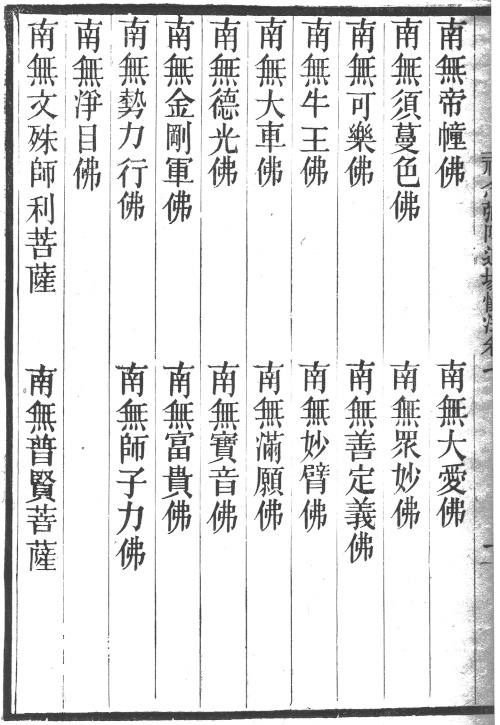 南無帝幢佛　南無大愛佛
南無須蔓色佛　南無眾妙佛
南無可樂佛　南無善定義佛
南無牛王佛　南無妙臂佛
南無大車佛　南無滿願佛
南無德光佛　南無寶音佛
南無金剛軍佛　南無富貴佛
南無勢力行佛　南無師子力佛
南無淨目佛
南無文殊師利菩薩　南無普賢菩薩